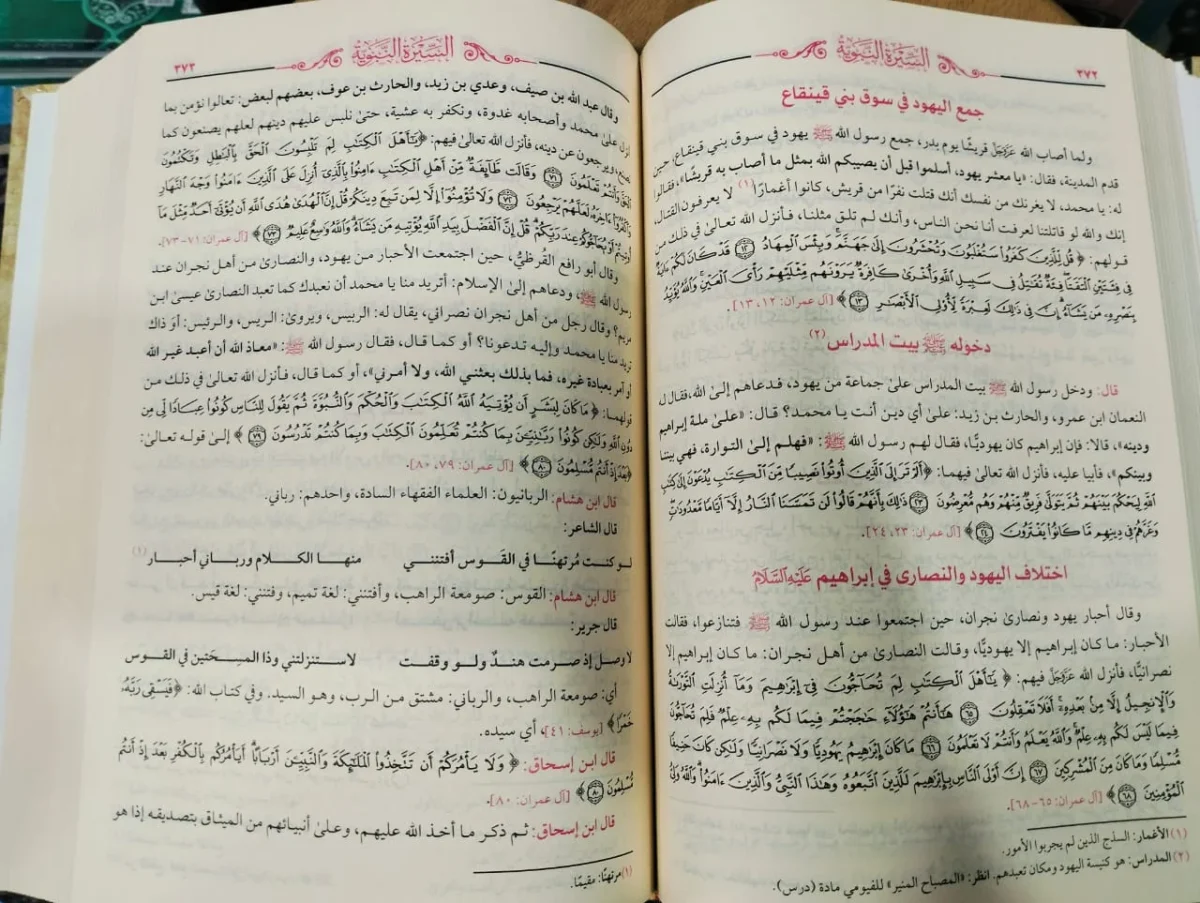 ٣٧٢
السيرة النبوية
جمع اليهود في سوق بني قينقاع
ولما أصاب الله عَزَّوَجَلَّ قريشًا يوم بدر، جمع رسول الله ﷺ يهود في سوق بني قينقاع، حين
قدم المدينة، فقال: «يا معشر يهود، أسلموا قبل أن يصيبكم الله بمثل ما أصاب به قريشًا»، فقالوا
له: يا محمد، لا يغرنك من نفسك أنك قتلت نفرًا من قريش، كانوا أغمارًا(١) لا يعرفون القتال،
إنك والله لو قاتلتنا لعرفت أنا نحن الناس، وأنك لم تلق مثلنا، فأنزل الله تعالى في ذلك من
قولهم: ﴿قُل لِّلَّذِينَ كَفَرُوا۟ سَتُغْلَبُونَ وَتُحْشَرُونَ إِلَىٰ جَهَنَّمَ ۚ وَبِئْسَ ٱلْمِهَادُ ١٢ قَدْ كَانَ لَكُمْ ءَايَةٌ
فِي فِئَتَيْنِ ٱلْتَقَتَا ۖ فِئَةٌ تُقَٰتِلُ فِي سَبِيلِ ٱللَّهِ وَأُخْرَىٰ كَافِرَةٌ يَرَوْنَهُم مِّثْلَيْهِمْ رَأْيَ ٱلْعَيْنِ ۚ وَٱللَّهُ يُؤَيِّدُ
بِنَصْرِهِۦ مَن يَشَآءُ ۗ إِنَّ فِي ذَٰلِكَ لَعِبْرَةً لِّأُو۟لِي ٱلْأَبْصَٰرِ ١٣﴾ [آل عمران: ١٢، ١٣].
دخوله ﷺ بيت المدراس(٢)
قال: ودخل رسول الله ﷺ بيت المدراس على جماعة من يهود، فدعاهم إلى الله، فقال له
النعمان ابن عمرو، والحارث بن زيد: على أي دين أنت يا محمد؟ قال: «على ملة إبراهيم
ودينه»، قالا: فإن إبراهيم كان يهوديًّا، فقال لهم رسول الله ﷺ: «فهلم إلى التوارة، فهي بيننا
وبينكم»، فأبيا عليه، فأنزل الله تعالى فيهما: ﴿أَلَمْ تَرَ إِلَى ٱلَّذِينَ أُوتُوا۟ نَصِيبًا مِّنَ ٱلْكِتَٰبِ يُدْعَوْنَ إِلَىٰ كِتَٰبِ
ٱللَّهِ لِيَحْكُمَ بَيْنَهُمْ ثُمَّ يَتَوَلَّىٰ فَرِيقٌ مِّنْهُمْ وَهُم مُّعْرِضُونَ ٢٣ ذَٰلِكَ بِأَنَّهُمْ قَالُوا۟ لَن تَمَسَّنَا ٱلنَّارُ إِلَّآ أَيَّامًا مَّعْدُودَٰتٍ ۖ
وَغَرَّهُمْ فِي دِينِهِم مَّا كَانُوا۟ يَفْتَرُونَ ٢٤﴾ [آل عمران: ٢٣، ٢٤].
اختلاف اليهود والنصارى في إبراهيم عَلَيْهِ السَّلَامُ
وقال أحبار يهود ونصارى نجران، حين اجتمعوا عند رسول الله ﷺ فتنازعوا، فقالت
الأحبار: ما كان إبراهيم إلا يهوديًّا، وقالت النصارى من أهل نجران: ما كان إبراهيم إلا
نصرانيًّا، فأنزل الله عَزَّوَجَلَّ فيهم: ﴿يَٰٓأَهْلَ ٱلْكِتَٰبِ لِمَ تُحَآجُّونَ فِيٓ إِبْرَٰهِيمَ وَمَآ أُنزِلَتِ ٱلتَّوْرَىٰةُ
وَٱلْإِنجِيلُ إِلَّا مِنۢ بَعْدِهِۦٓ ۚ أَفَلَا تَعْقِلُونَ ٦٥ هَٰٓأَنتُمْ هَٰٓؤُلَآءِ حَٰجَجْتُمْ فِيمَا لَكُم بِهِۦ عِلْمٌ فَلِمَ تُحَآجُّونَ
فِيمَا لَيْسَ لَكُم بِهِۦ عِلْمٌ ۚ وَٱللَّهُ يَعْلَمُ وَأَنتُمْ لَا تَعْلَمُونَ ٦٦ مَا كَانَ إِبْرَٰهِيمُ يَهُودِيًّا وَلَا نَصْرَانِيًّا وَلَٰكِن كَانَ حَنِيفًا
مُّسْلِمًا وَمَا كَانَ مِنَ ٱلْمُشْرِكِينَ ٦٧ إِنَّ أَوْلَى ٱلنَّاسِ بِإِبْرَٰهِيمَ لَلَّذِينَ ٱتَّبَعُوهُ وَهَٰذَا ٱلنَّبِيُّ وَٱلَّذِينَ ءَامَنُوا۟ ۗ وَٱللَّهُ وَلِيُّ
ٱلْمُؤْمِنِينَ ٦٨﴾ [آل عمران: ٦٥-٦٨].
(١) الأغمار: السذج الذين لم يجربوا الأمور.
(٢) المدراس: هو كنيسة اليهود ومكان تعبدهم. انظر: «المصباح المنير» للفيومي مادة (درس).
السيرة النبوية
٣٧٣
وقال عبد الله بن صيف، وعدي بن زيد، والحارث بن عوف، بعضهم لبعض: تعالوا نؤمن بما
أنزل على محمد وأصحابه غدوة، ونكفر به عشية، حتى نلبس عليهم دينهم لعلهم يصنعون كما
نصنع، ويرجعون عن دينه، فأنزل الله تعالى فيهم: ﴿يَٰٓأَهْلَ ٱلْكِتَٰبِ لِمَ تَلْبِسُونَ ٱلْحَقَّ بِٱلْبَٰطِلِ وَتَكْتُمُونَ
ٱلْحَقَّ وَأَنتُمْ تَعْلَمُونَ ٧١ وَقَالَت طَّآئِفَةٌ مِّنْ أَهْلِ ٱلْكِتَٰبِ ءَامِنُوا۟ بِٱلَّذِيٓ أُنزِلَ عَلَى ٱلَّذِينَ ءَامَنُوا۟ وَجْهَ ٱلنَّهَارِ
وَٱكْفُرُوٓا۟ ءَاخِرَهُۥ لَعَلَّهُمْ يَرْجِعُونَ ٧٢ وَلَا تُؤْمِنُوٓا۟ إِلَّا لِمَن تَبِعَ دِينَكُمْ قُلْ إِنَّ ٱلْهُدَىٰ هُدَى ٱللَّهِ أَن يُؤْتَىٰٓ أَحَدٌ مِّثْلَ مَآ
أُوتِيتُمْ أَوْ يُحَآجُّوكُمْ عِندَ رَبِّكُمْ ۗ قُلْ إِنَّ ٱلْفَضْلَ بِيَدِ ٱللَّهِ يُؤْتِيهِ مَن يَشَآءُ ۗ وَٱللَّهُ وَٰسِعٌ عَلِيمٌ ٧٣﴾ [آل عمران: ٧١-٧٣].
وقال أبو رافع القُرظيُّ، حين اجتمعت الأحبار من يهود، والنصارى من أهل نجران عند
رسول الله ﷺ، ودعاهم إلى الإسلام: أتريد منا يا محمد أن نعبدك كما تعبد النصارى عيسى ابن
مريم؟ وقال رجل من أهل نجران نصراني، يقال له: الربيس، ويروى: الريس، والرئيس: أوَ ذاك
تريد منا يا محمد وإليه تدعونا؟ أو كما قال، فقال رسول الله ﷺ: «معاذ الله أن أعبد غير الله
أو آمر بعبادة غيره، فما بذلك بعثني الله، ولا أمرني»، أو كما قال، فأنزل الله تعالى في ذلك من
قولهما: ﴿مَا كَانَ لِبَشَرٍ أَن يُؤْتِيَهُ ٱللَّهُ ٱلْكِتَٰبَ وَٱلْحُكْمَ وَٱلنُّبُوَّةَ ثُمَّ يَقُولَ لِلنَّاسِ كُونُوا۟ عِبَادًا لِّي مِن
دُونِ ٱللَّهِ وَلَٰكِن كُونُوا۟ رَبَّٰنِيِّينَ بِمَا كُنتُمْ تُعَلِّمُونَ ٱلْكِتَٰبَ وَبِمَا كُنتُمْ تَدْرُسُونَ ٧٩﴾ إلى قوله تعالى:
﴿بَعْدَ إِذْ أَنتُم مُّسْلِمُونَ ٨٠﴾ [آل عمران: ٧٩، ٨٠].
قال ابن هشام: الربانيون: العلماء الفقهاء السادة، واحدهم: رباني.
قال الشاعر:
لو كنت مُرتهنًا في القَوس أفتنني منها الكلام ورباني أحبار(١)
قال ابن هشام: القوس: صومعة الراهب، وأفتنني: لغة تميم، وفتنني: لغة قيس.
قال جرير:
لا وصل إذ صرمت هندٌ ولو وقفت لاستنزلتني وذا المسحَتين في القوس
أي: صومعة الراهب، والرباني: مشتق من الرب، وهو السيد. وفي كتاب الله: ﴿فَيَسْقِي رَبَّهُۥ
خَمْرًا﴾ [يوسف: ٤١]، أي سيده.
قال ابن إسحاق: ﴿وَلَا يَأْمُرَكُمْ أَن تَتَّخِذُوا۟ ٱلْمَلَٰٓئِكَةَ وَٱلنَّبِيِّۦنَ أَرْبَابًا ۗ أَيَأْمُرُكُم بِٱلْكُفْرِ بَعْدَ إِذْ أَنتُم
مُّسْلِمُونَ ٨٠﴾ [آل عمران: ٨٠].
قال ابن إسحاق: ثم ذكر ما أخذ الله عليهم، وعلى أنبيائهم من الميثاق بتصديقه إذا هو
(١) مرتهنًا: مقيمًا.